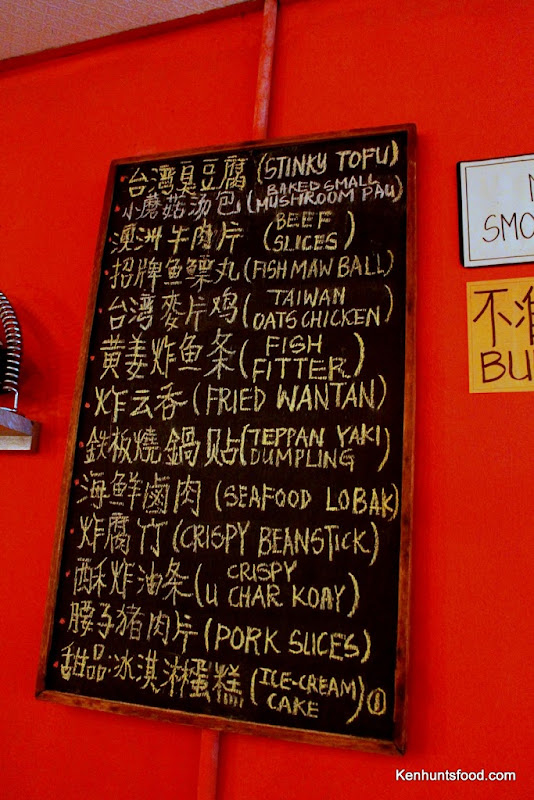 台湾臭豆腐 (STINKY TOFU)
小蘑菇汤包 (BAKED SMALL MUSHROOM PAU)
澳洲牛肉片 (BEEF SLICES)
招牌鱼鳔丸 (FISH MAW BALL)
台湾麥片鸡 (TAIWAN OATS CHICKEN)
黄姜炸鱼条 (FISH FITTER)
炸云吞 (FRIED WANTAN)
鉄板燒鍋贴 (TEPPAN YAKI DUMPLING)
海鮮鹵肉 (SEAFOOD LOBAK)
炸腐竹 (CRISPY BEANSTICK)
酥炸油条 (CRISPY U CHAR KOAY)
腰子猪肉片 (PORK SLICES)
甜品:冰淇淋蛋糕 (ICE-CREAM CAKE)
SMO
不准
BU
Kenhuntsfood.com